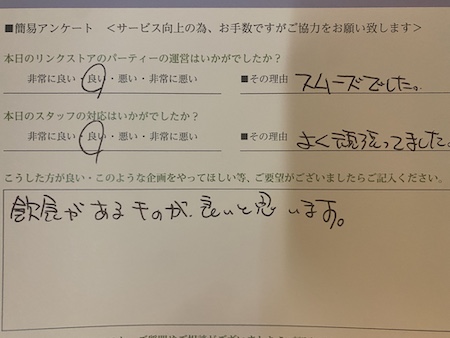 ■簡易アンケート　＜サービス向上の為、お手数ですがご協力をお願い致します＞
本日のリンクストアのパーティーの運営はいかがでしたか？
非常に良い・良い・悪い・非常に悪い　■その理由　スムーズでした。
本日のスタッフの対応はいかがでしたか？
非常に良い・良い・悪い・非常に悪い　■その理由　よく頑張ってました。
こうした方が良い・このような企画をやってほしい等、ご要望がございましたらご記入ください。
飲食があるものが、良いと思います。